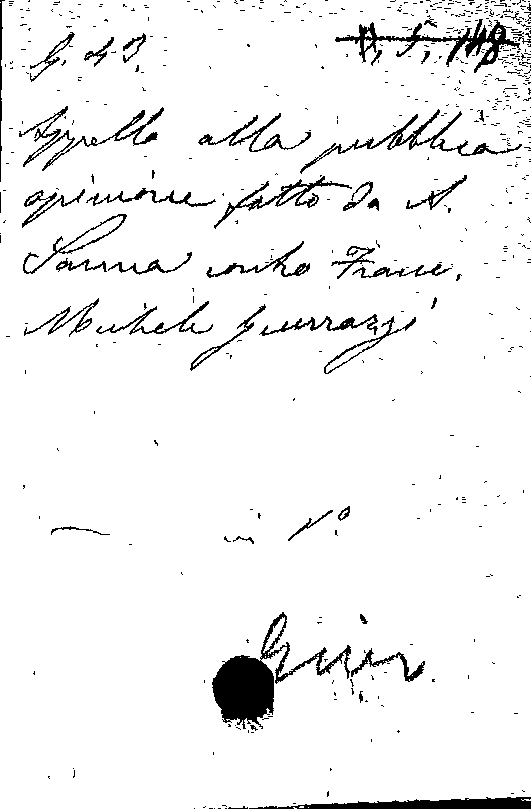 G. 43.
H. 5. 148
Appello alla pubblica
opinione fatto da A.
Sanna contro Franc.
Michele Guerrazzi
— in 1º